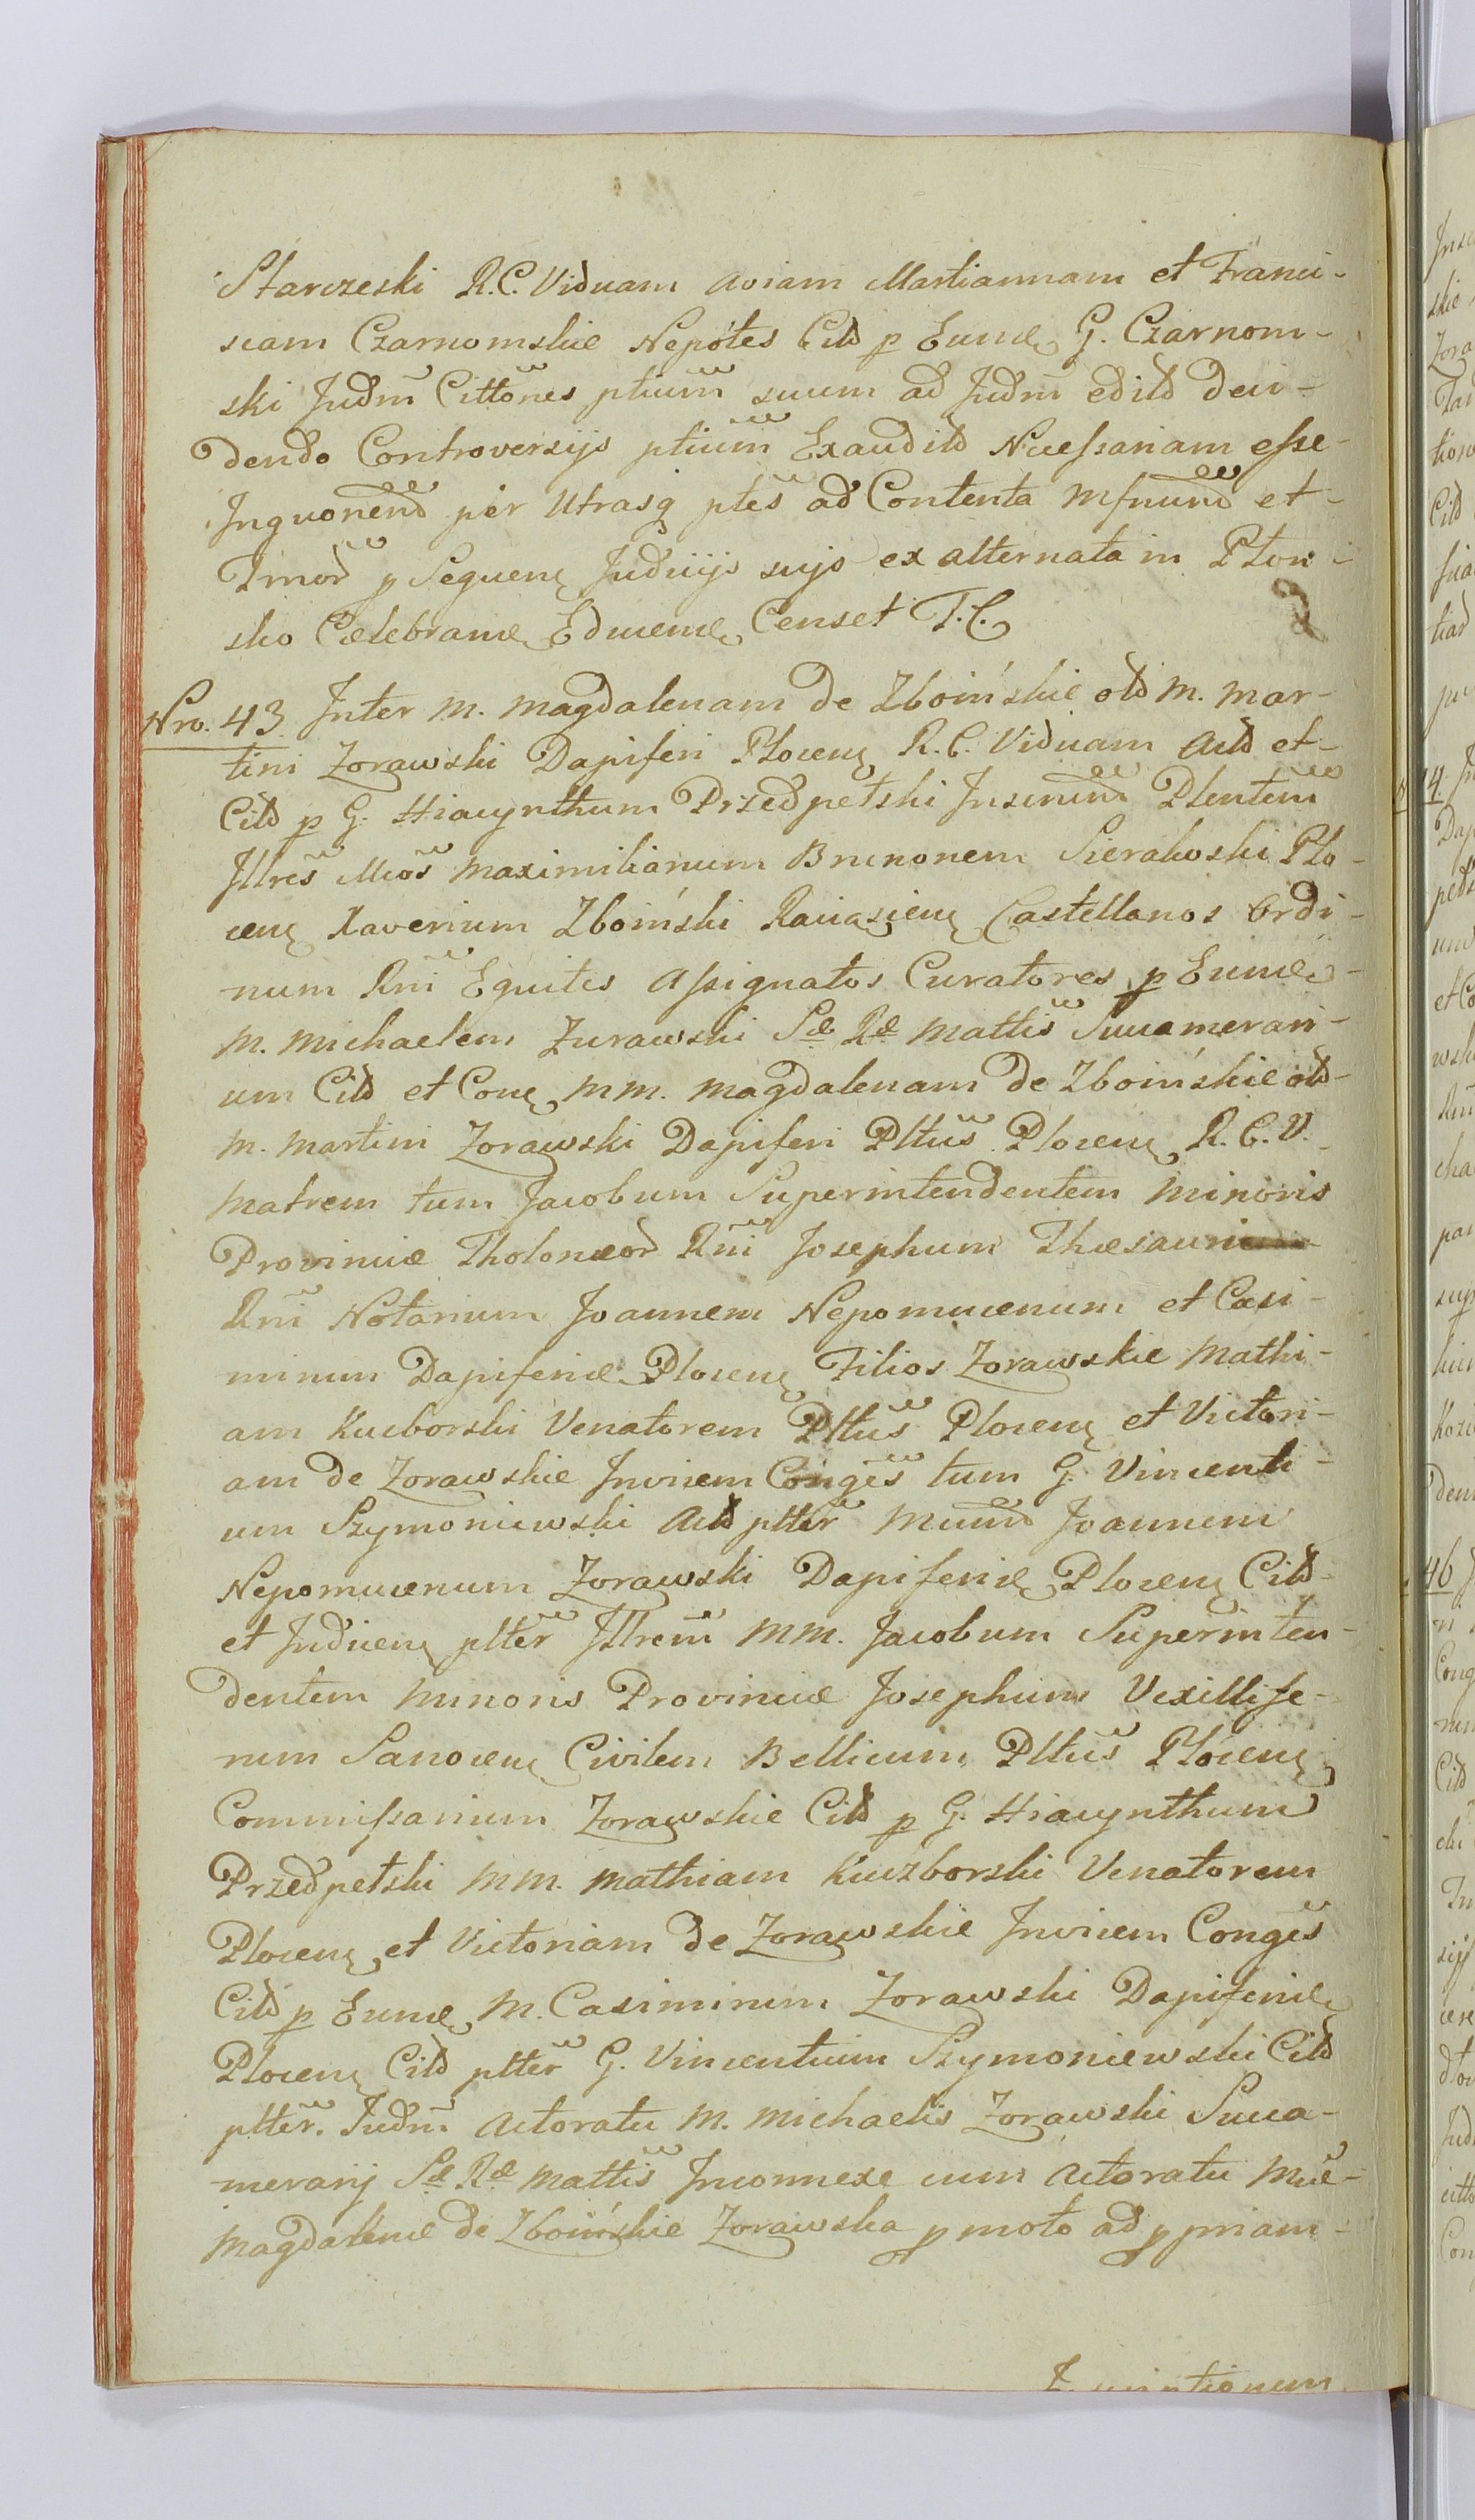 Starczeski R.C. Viduam Aviam Martiannam et Franci-
scam Czarnomskie Nepótes Citd p Eund G. Czarnom-
ski Judm̃ Cittõnes ptium̃ suum ad Judm̃ editd deci-
dendo Controversijs ptium̃ Exauditd Necessariam esse
Inquonend per Utrasq ptes ad Contenta Mfnund et
Imod p Sequenꝫ Judicijs sujs ex alternata in Plon-
sko Celebrand Educend Censet T.C.
Nro. 43 Inter M. Magdalenam de Zboińskie old M. Mar-
tini Zorawski Dapiferi Plocenꝫ R.C. Viduam Actd et
Citd p G. Hiacynthum Przedpełski Inserund Plentem̃
Illres̃ Mcos̃ Maximilianum Brunonem Sierakoski Plo-
cenꝫ Xaverium Zboiński Raciazienꝫ Castellanos Ordi-
num Rni Equites Assignatos Curatores p Eund
M. Michaelem Zurawski Sæ Ræ Mattis̃ Succamerari-
um Citd et Conꝫ MM. Magdalenam de Zboińskie old
M. Martini Zorawski Dapiferi Pltus̃ Plocenꝫ R.C.V.
Matrem tum Jacobum Superintendentem Minoris
Provinciæ Tholoneor Rni Josephum Thesauri
Rni Notarium Joannem Nepomucenum et Casi-
mirum Dapiferid Plocenꝫ Filios Zorawskie Mathi-
am Kucborski Venatorem Pltus̃ Plocenꝫ et Victori-
am de Zorawskie Invicem Conges̃ tum G. Vincenti-
um Szymoniewski Actd pltter̃ Mcund Joannem
Nepomucenum Zorawski Dapiferid Plocenꝫ Citd
et Judicenꝫ pltter̃ Illrem̃ MM. Jacobum Superinten-
dentem Minoris Provinciæ Josephum Vexillife-
rum Sanocenꝫ Civilem Bellicum Pltus̃ Plocenꝫ
Commissarium Zorawskie Citd p G. Hiacynthum
Przedpełski MM. Mathiam Kuczborski Venatorem
Plocenꝫ et Victoriam de Zorawskie Invicem Conges̃
Citd p Eund M. Casimirum Zorawski Dapiferid
Plocenꝫ Citd pltter̃ G. Vincentium Szymoniewski Citd
pltter̃. Judm̃ Actoratu M. Michaelis Zorawski Succa-
merarij Sæ Ræ Mattis̃ Inconnexe cum Actoratu Mcæ
Magdalenæ de Zboińskie Zorawska p moto ad ppriam